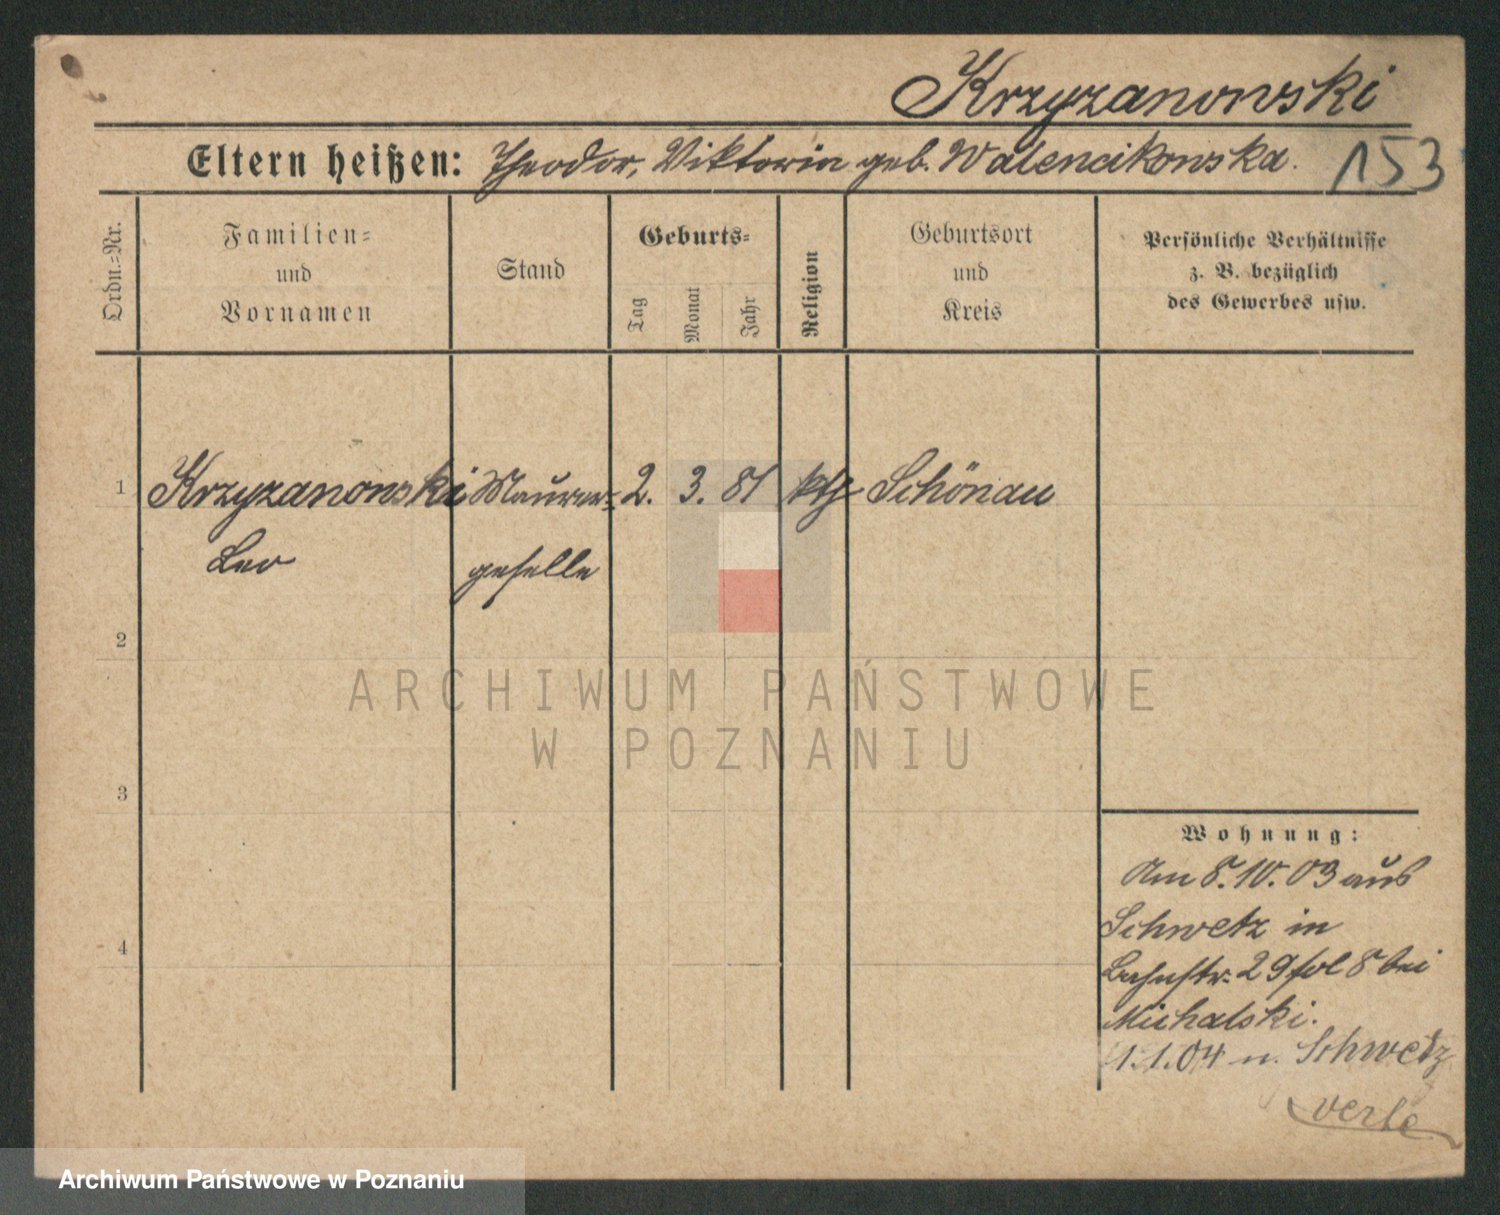 Krzyzanowski
Eltern heißen: Theodor, Viktoria geb. Walencikowska.
153
Ordn.-Nr.
Familien-
und
Vornamen
Stand
Geburts-
Tag
Monat
Jahr
Religion
Geburtsort
und
Kreis
Persönliche Verhältnisse
z. B. bezüglich
des Gewerbes usw.
1 Krzyzanowski Maurer- 2. 3. 81 kth Schönau
Leo geselle
2
3
4
Wohnung:
Am 8.10.03 aus
Schwetz in
Bahnstr. 29 bei
Michalski.
1.1.04 n. Schwetz
ARCHIWUM PAŃSTWOWE
W POZNANIU
Archiwum Państwowe w Poznaniu